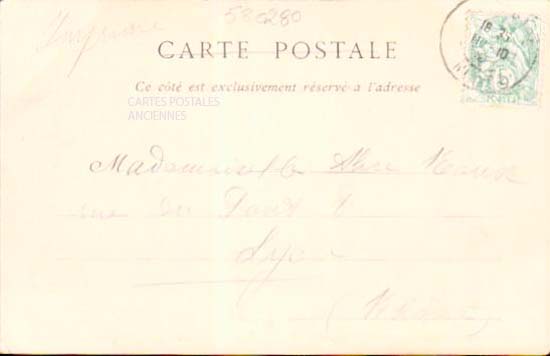 Imprimé
580280
CARTE POSTALE
Ce côté est exclusivement réservé à l'adresse
CARTES POSTALES
ANCIENNES
Mademoiselle
rue du
Lyon
(Rhône)